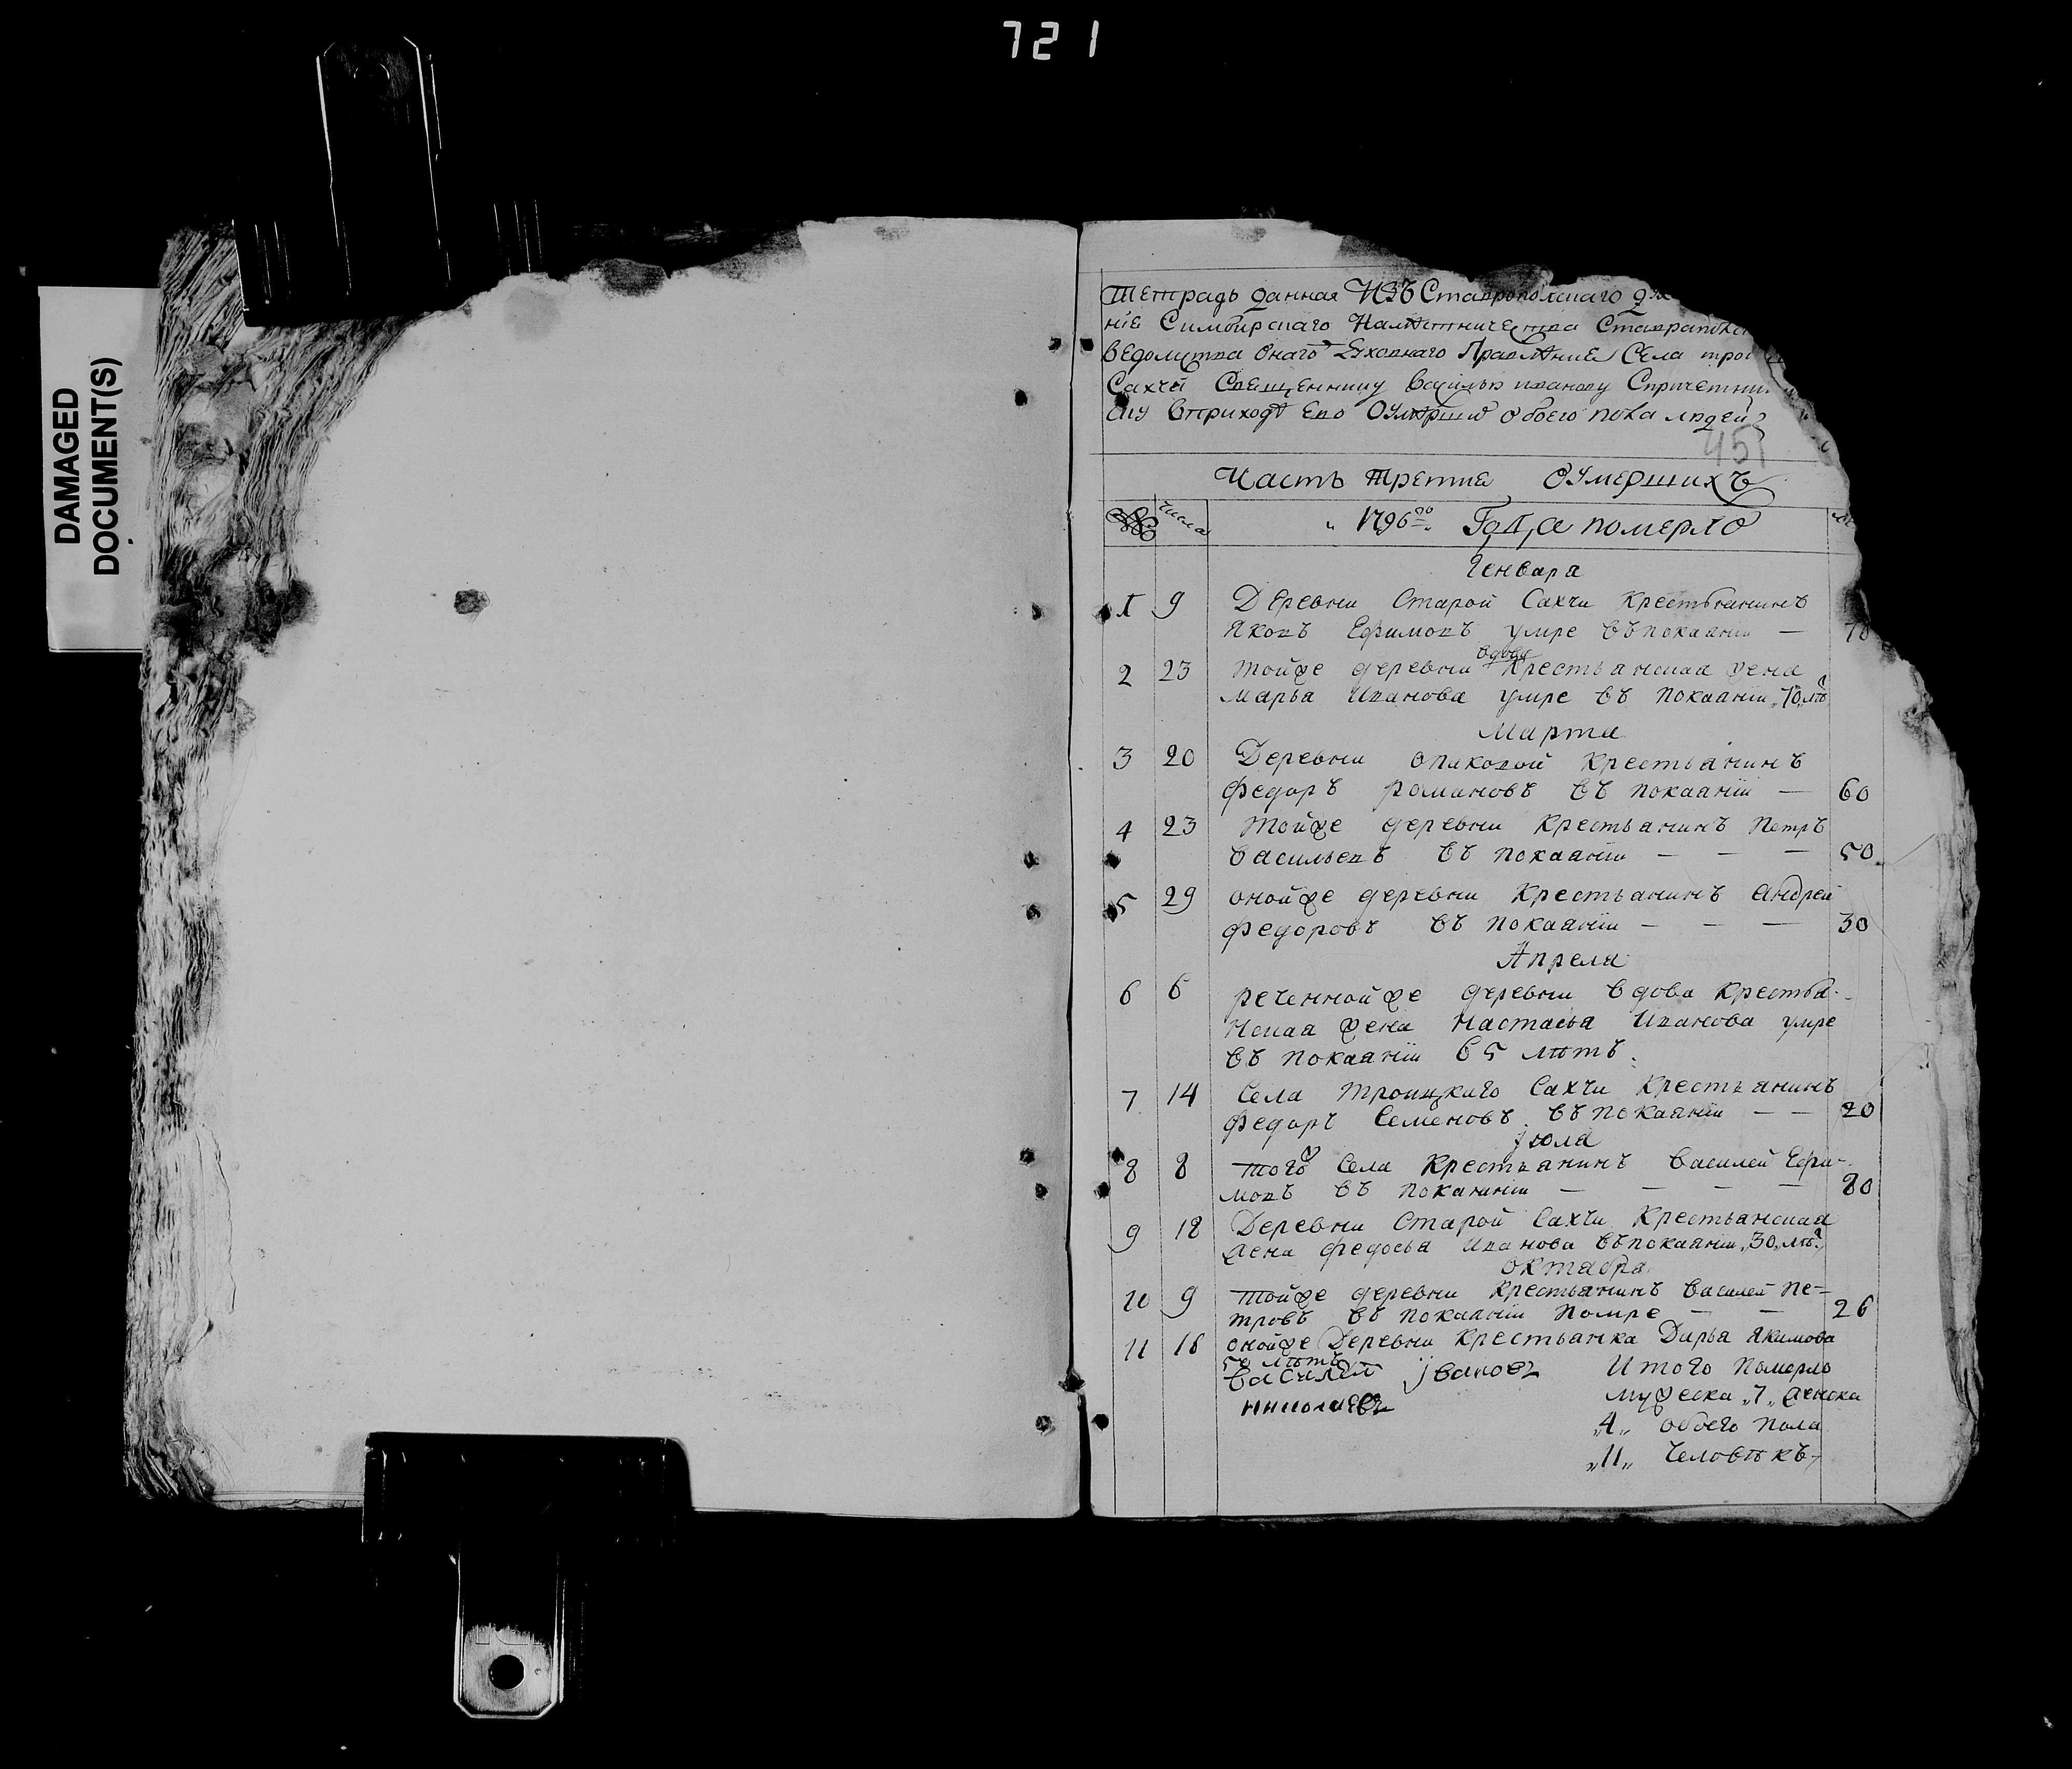 721
DAMAGED
DOCUMENT(S)
Тетрадь данная Изъ Ставропольскаго
ніе Симбирскаго Наместничества
ведомства онаго Духовнаго Правление Села
Сахчи Священнику Василью иванову
в приходе Ево оумерших обоего пола людей
451
Часть третие оумершихъ
№ числа „1796го„ Года померло
Генваря
1 9 Деревни Старой Сахчи крестьянинъ
Яковъ Ефимовъ умре въ покаянiи — 70
2 23 тойже деревни вдова крестьянская жена
марья Иванова умре въ покаянiи „70„ лѣ
марта
3 20 Деревни крестьянинъ
федоръ романовъ въ покаянiи — 60
4 23 тойже деревни крестьянинъ петръ
васильевъ въ покаянiи — — — 50
5 29 онойже деревни крестьянинъ андрей
федоровъ въ покаянiи — — — 30
Апреля
6 6 реченнойже деревни вдова крестья-
нская жена настасья Иванова умре
въ покаянiи 65 лѣтъ
7 14 Села троицкаго Сахчи крестьянинъ
федоръ Семеновъ въ покаянiи — — 20
jюля
8 8 того Села крестьянинъ василей Ефи-
мовъ въ покаянiи — — — — 80
9 18 Деревни Старой Сахчи крестьянская
жена федосья Иванова въ покаянiи „30„ лѣ
октября
10 9 тойже деревни крестьянинъ василей пе-
тровъ въ покаянiи помре — — 26
11 18 онойже Деревни крестьянка Дарья якимова
50 лѣтъ
василей jвановъ Итого померло
николаевъ мужеска „7„ женска
„4„ обоего пола
„11„ человѣкъ